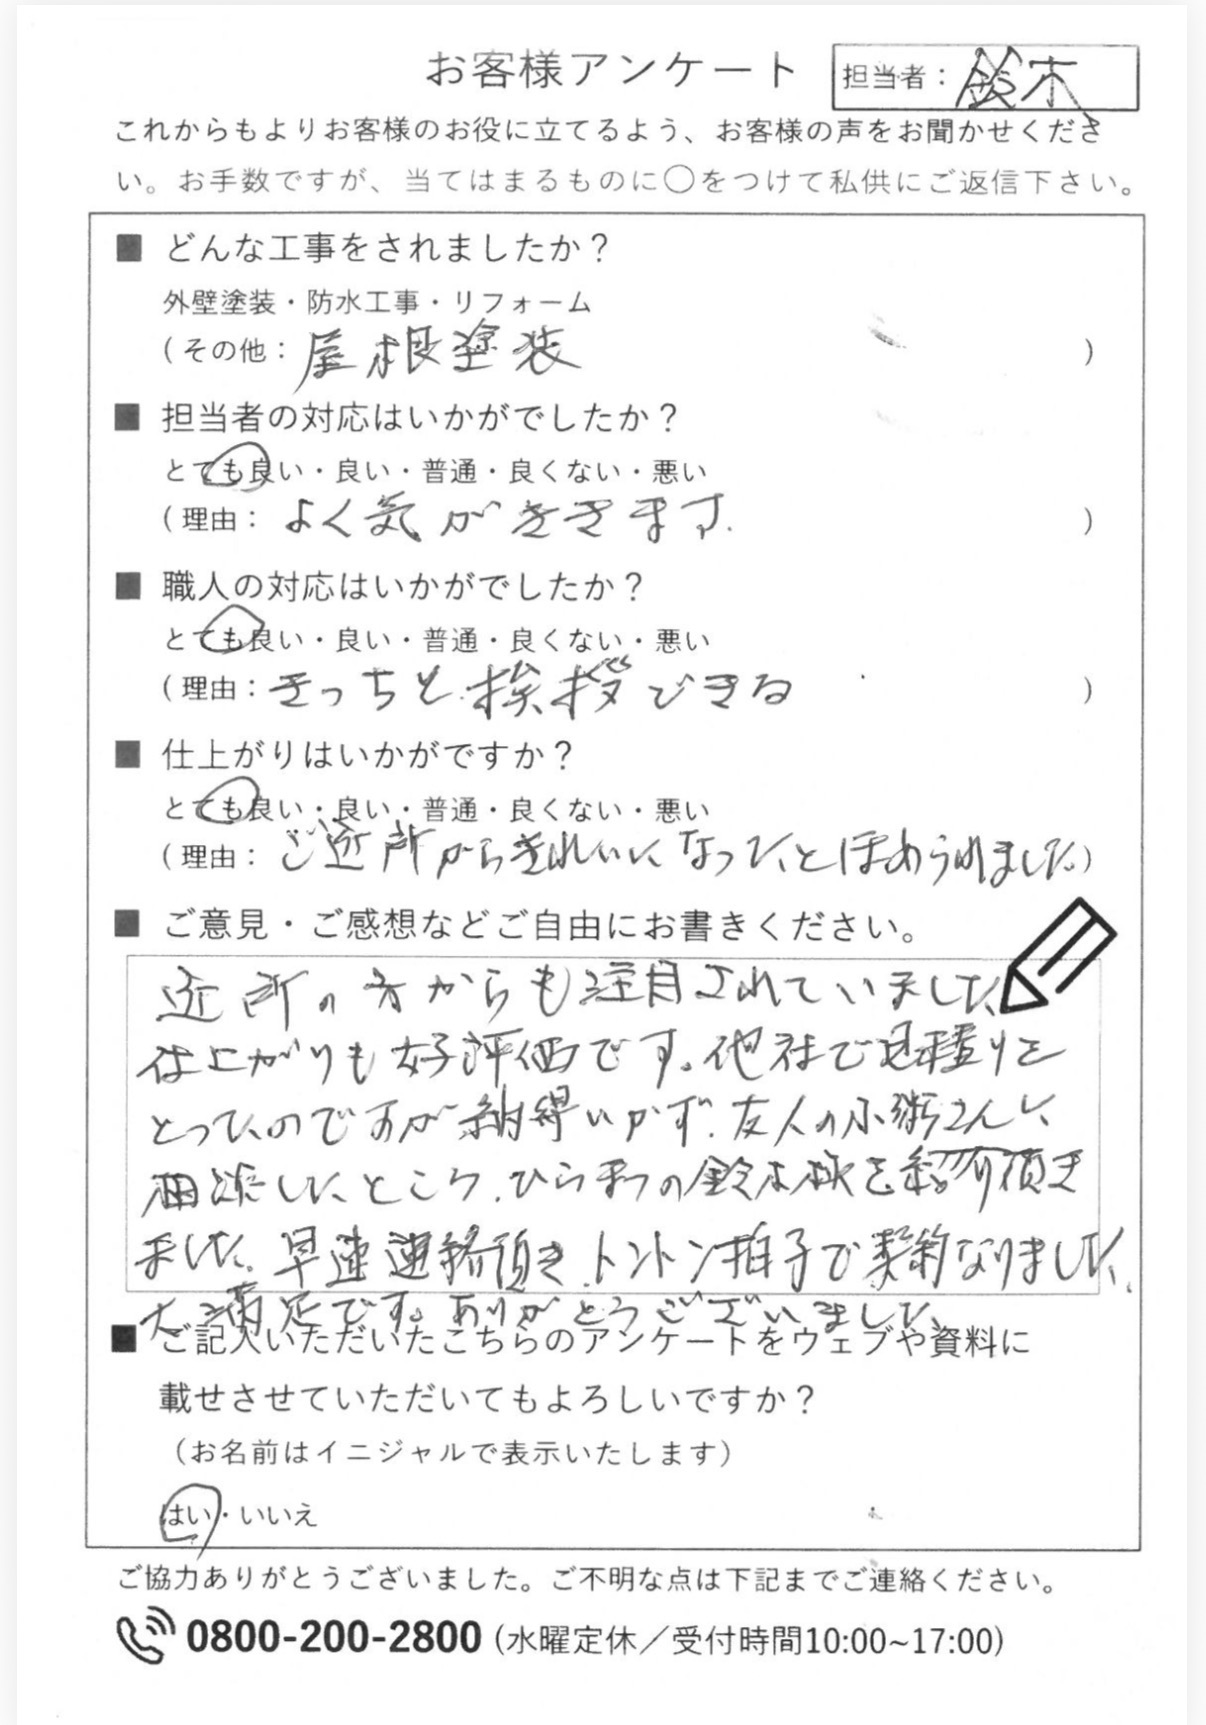 お客様アンケート
担当者：鈴木
これからもよりお客様のお役に立てるよう、お客様の声をお聞かせくださ
い。お手数ですが、当てはまるものに〇をつけて私供にご返信下さい。
■ どんな工事をされましたか？
外壁塗装・防水工事・リフォーム
（その他：屋根塗装）
■ 担当者の対応はいかがでしたか？
とても良い・良い・普通・良くない・悪い
（理由：よく気がききます.）
■ 職人の対応はいかがでしたか？
とても良い・良い・普通・良くない・悪い
（理由：きっちと挨拶できる）
■ 仕上がりはいかがですか？
とても良い・良い・普通・良くない・悪い
（理由：ご近所からきれいになったとほめられました。）
■ ご意見・ご感想などご自由にお書きください。
近所の方からも注目されていました
仕上がりも好評価です。他社で見積りを
とったのですが納得いかず.友人の小粥さんに
相談したところ.ひらまつの鈴木様を紹介頂き
ました。早速連絡頂き.トントン拍子で契約なりました.
大満足です。ありがとうございました
■ ご記入いただいたこちらのアンケートをウェブや資料に
載せさせていただいてもよろしいですか？
（お名前はイニシャルで表示いたします）
はい・いいえ
ご協力ありがとうございました。ご不明な点は下記までご連絡ください。
0800-200-2800 (水曜定休／受付時間10:00~17:00)